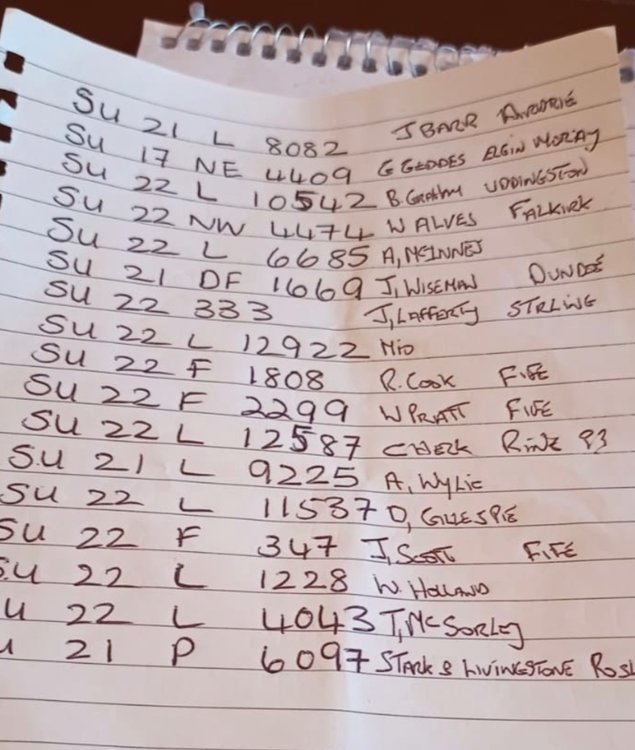 SU 21 L 8082 J BARR AIRDRIE
SU 17 NE 4409 G GEDDES ELGIN MORAY
SU 22 L 10542 B. UDDINGSTON
SU 22 NW 4474 W ALVES FALKIRK
SU 22 L 6685 A, MCINNES
SU 21 DF 1669 J, WISEMAN DUNDEE
SU 22 333 J, LAFFERTY STRLING
SU 22 L 12922
SU 22 F 1808 R. COOK FIFE
SU 22 F 2299 W PRATT FIFE
SU 22 L 12587 CHECK RING 93
S.U 21 L 9225 A, WYLIE
SU 22 L 11537 D, GILLESPIE
SU 22 F 347 J, SCOTT FIFE
SU 22 L 1228 W. HOLLAND
U 22 L 4043 T, MCSORLEY
21 P 6097 STARK & LIVINGSTONE ROSL